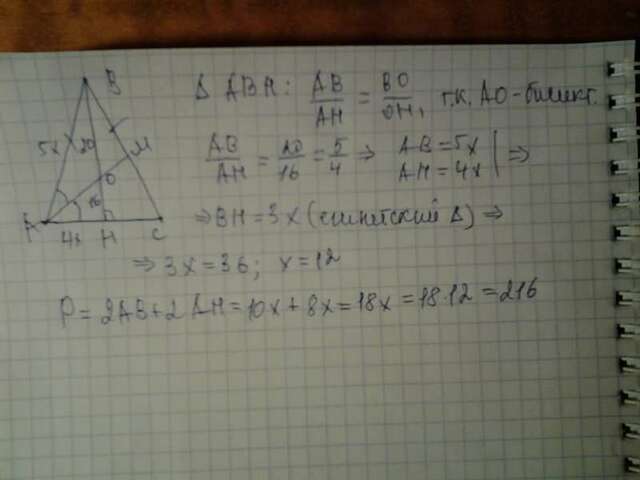 B
5x 20 M
O
16
A 4x H C
Δ ABH: AB/AH = BO/OH, т.к. AO - биссект.
AB/AH = 20/16 = 5/4 ⇒ AB = 5x
AH = 4x | ⇒
⇒ BH = 3x (египетский Δ) ⇒
⇒ 3x = 36; x = 12
P = 2AB + 2AH = 10x + 8x = 18x = 18·12 = 216